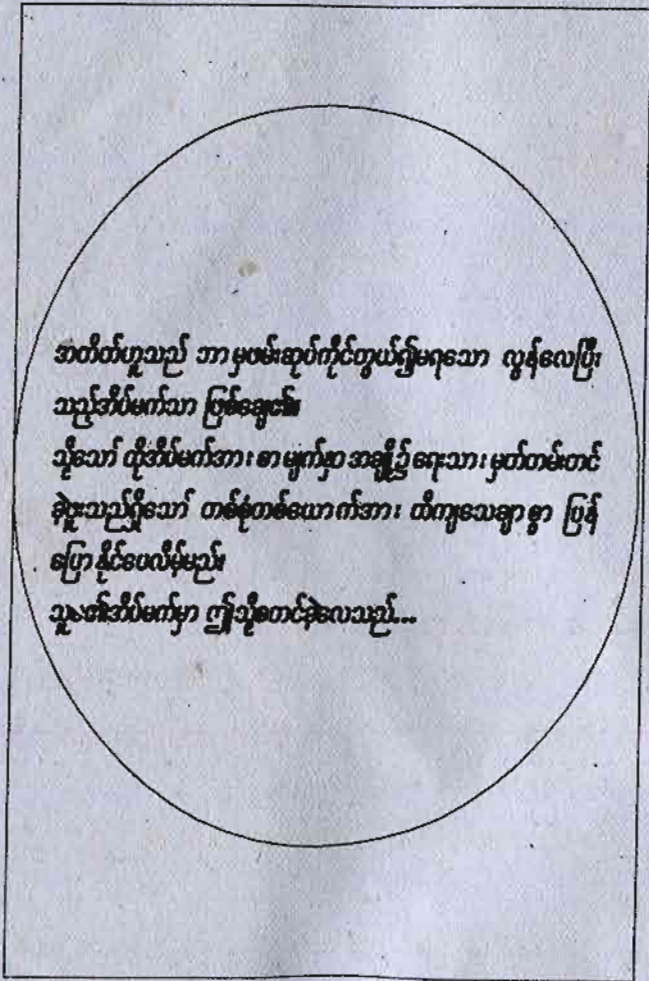 အတိတ်ဟူသည် ဘာမှဖမ်းဆုပ်ကိုင်တွယ်၍မရသော လွန်လေပြီး
သည့်အိပ်မက်သာ ဖြစ်ချေ၏။
သို့သော် ထိုအိပ်မက်အား စာမျက်နှာအချို့၌ ရေးသားမှတ်တမ်းတင်
ခဲ့ဖူးသည်ရှိသော် တစ်စုံတစ်ယောက်အား တိကျသေချာစွာ ပြန်
ပြောနိုင်ပေလိမ့်မည်။
သူမ၏အိပ်မက်မှာ ဤသို့စတင်ခဲ့လေသည်...